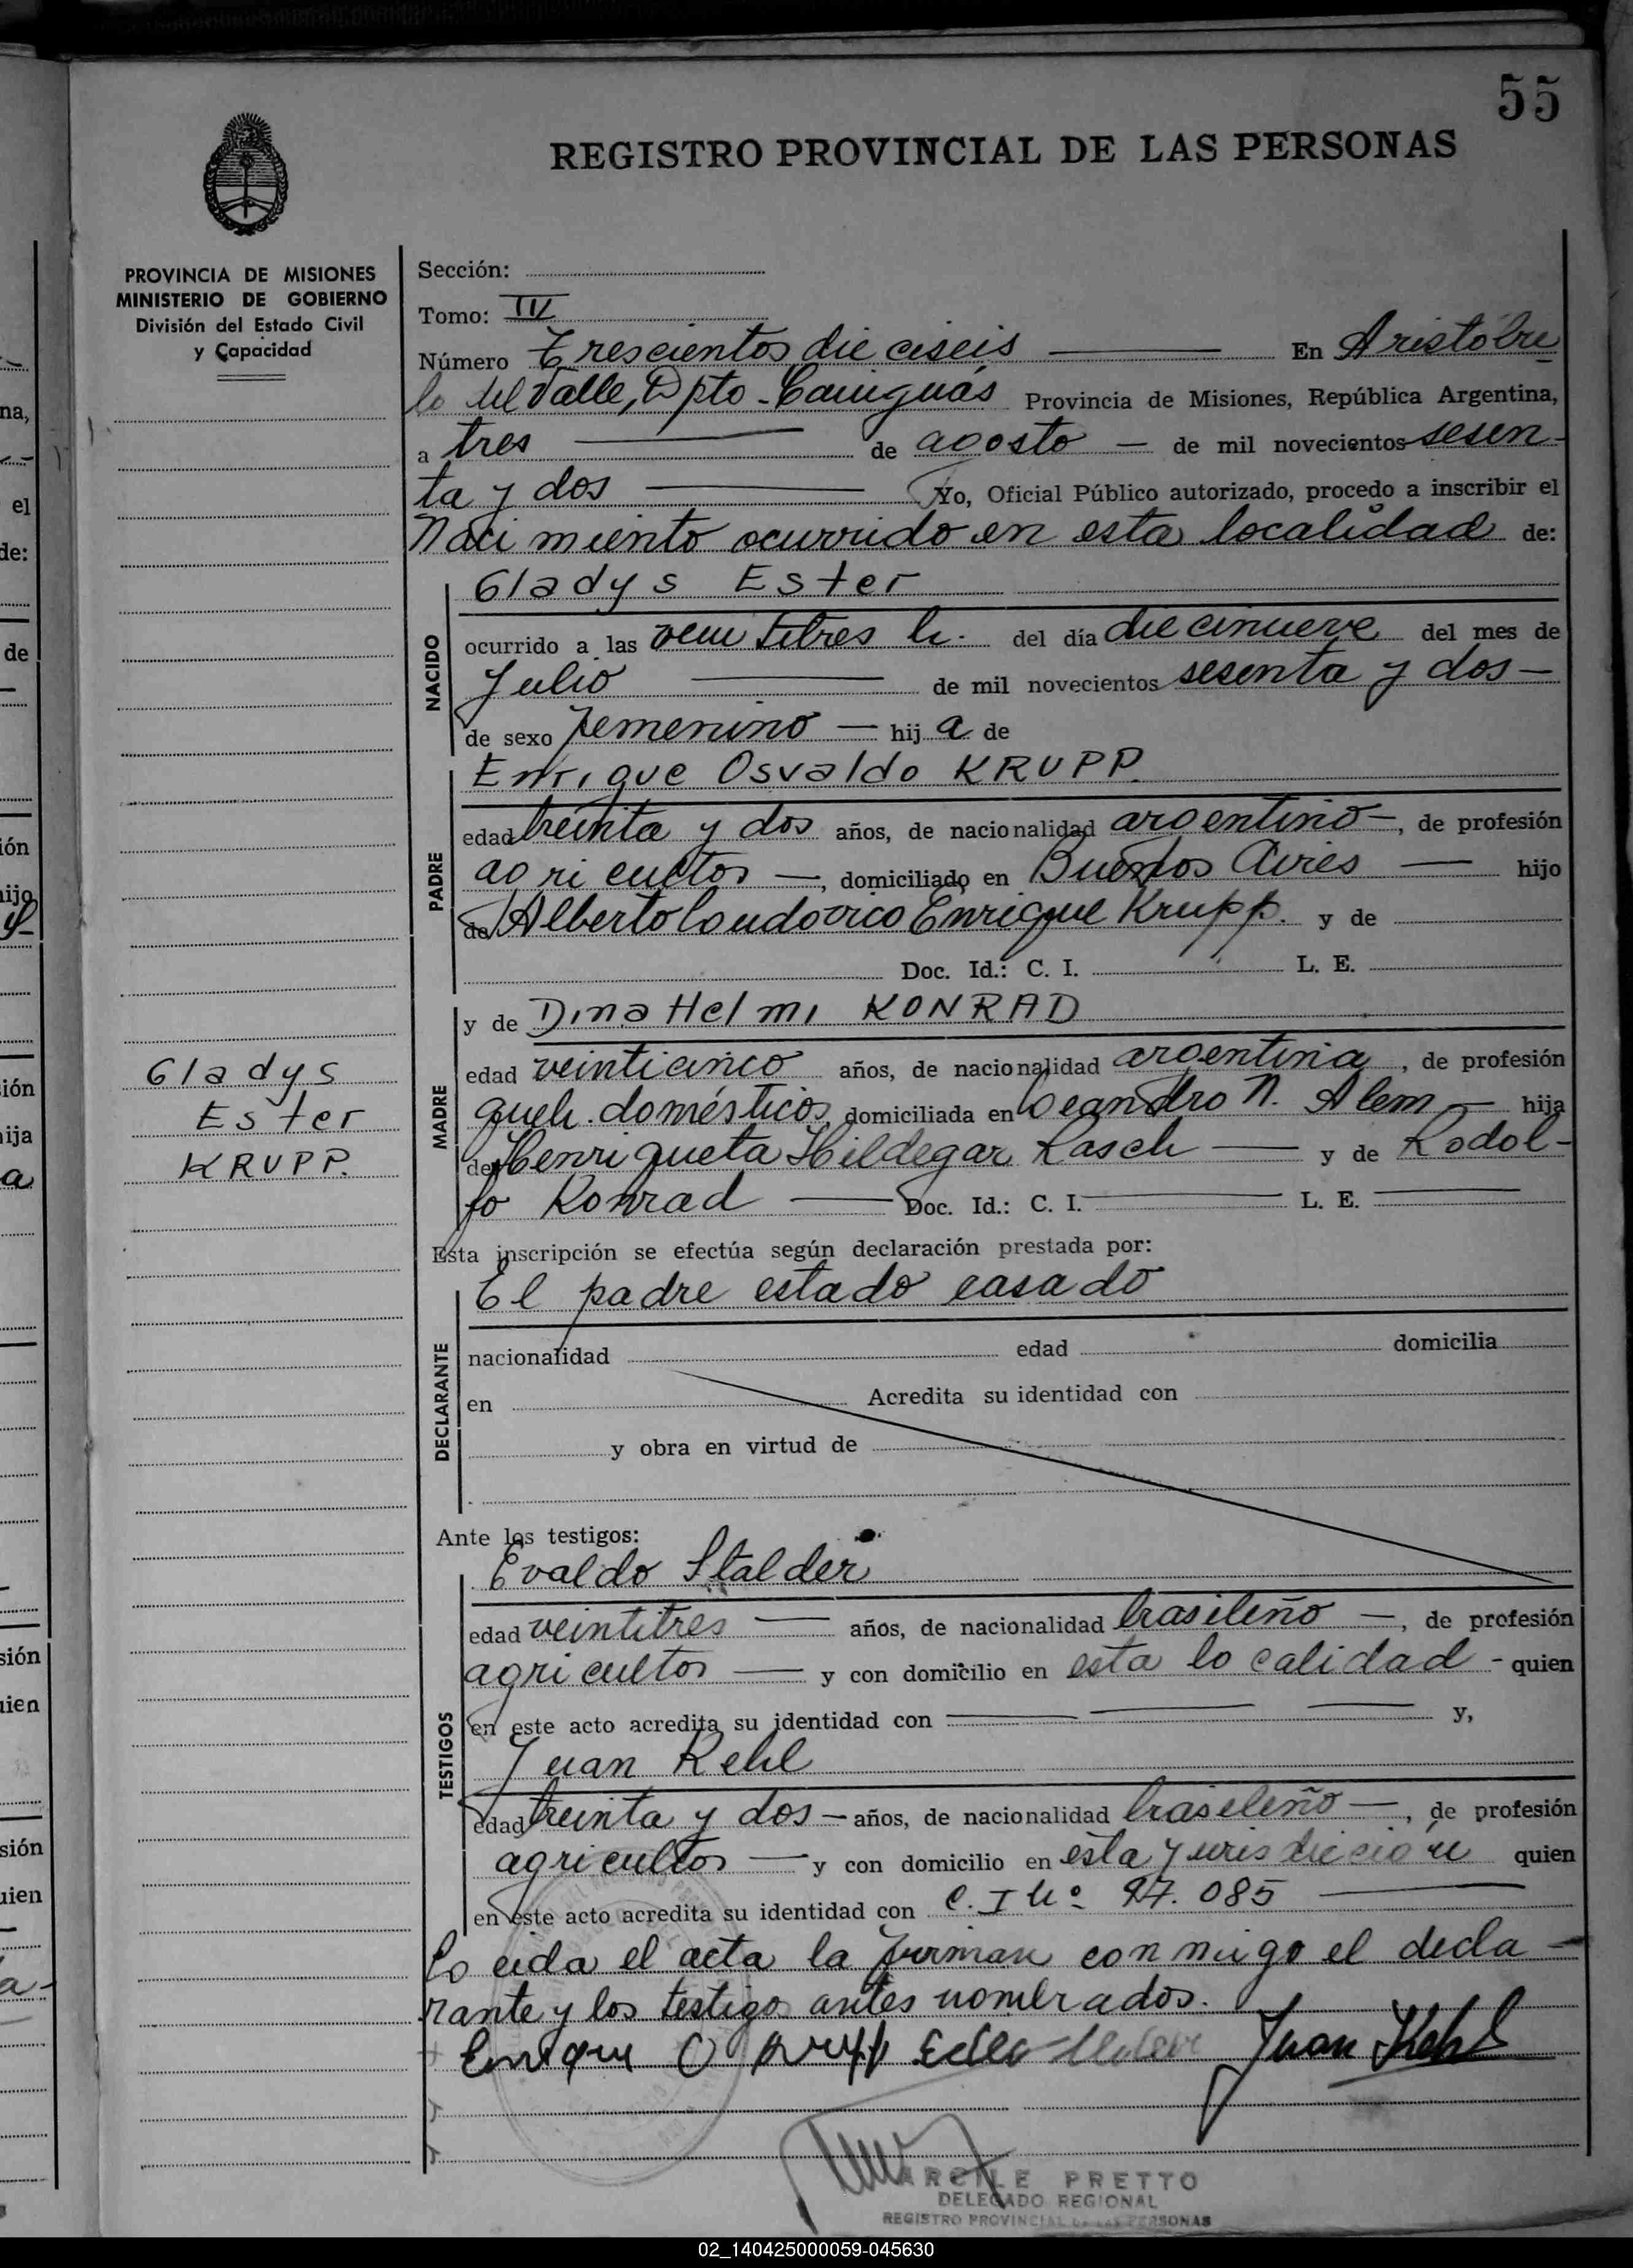 55
REGISTRO PROVINCIAL DE LAS PERSONAS
PROVINCIA DE MISIONES
MINISTERIO DE GOBIERNO
División del Estado Civil
y Capacidad
Sección:
Tomo: IV
Número Trescientos dieciseis — En Aristóbu
lo del Valle, Dpto - Cainguás Provincia de Misiones, República Argentina,
a tres — de agosto — de mil novecientos sesen-
ta y dos — Yo, Oficial Público autorizado, procedo a inscribir el
Nacimiento ocurrido en esta localidad de:
NACIDO
Gladys Ester
ocurrido a las veintitres h. del día diecinueve del mes de
Julio — de mil novecientos sesenta y dos —
de sexo femenino — hij a de
PADRE
Enrique Osvaldo KRUPP.
edad treinta y dos años, de nacionalidad argentino —, de profesión
agricultor —, domiciliado en Buenos Aires — hijo
de Alberto Loudovico Enrique Krupp. y de
Doc. Id.: C. I. L. E.
MADRE
y de Dina Helmi KONRAD
edad veinticinco años, de nacionalidad argentina, de profesión
queh. domésticos, domiciliada en Leandro N. Alem — hija
de Henriqueta Hildegar Rasch — y de Rodol-
fo Konrad — Doc. Id.: C. I. — L. E. —
Gladys
Ester
KRUPP.
Esta inscripción se efectúa según declaración prestada por:
DECLARANTE
El padre estado casado
nacionalidad edad domicilia
en Acredita su identidad con
y obra en virtud de
Ante los testigos:
TESTIGOS
Evaldo Stalder
edad veintitres — años, de nacionalidad brasileño —, de profesión
agricultor — y con domicilio en esta localidad - quien
en este acto acredita su identidad con — — — y,
Juan Kehl
edad treinta y dos — años, de nacionalidad brasileño —, de profesión
agricultor — y con domicilio en esta yurisdicción quien
en este acto acredita su identidad con C. I Nº 97.085 —
Leida el acta la firman conmigo el decla-
rante y los testigo antes nombrados.
Enrique O Krupp Juan Kehl
MARCILE PRETTO
DELEGADO REGIONAL
REGISTRO PROVINCIAL DE LAS PERSONAS
02_140425000059-045630